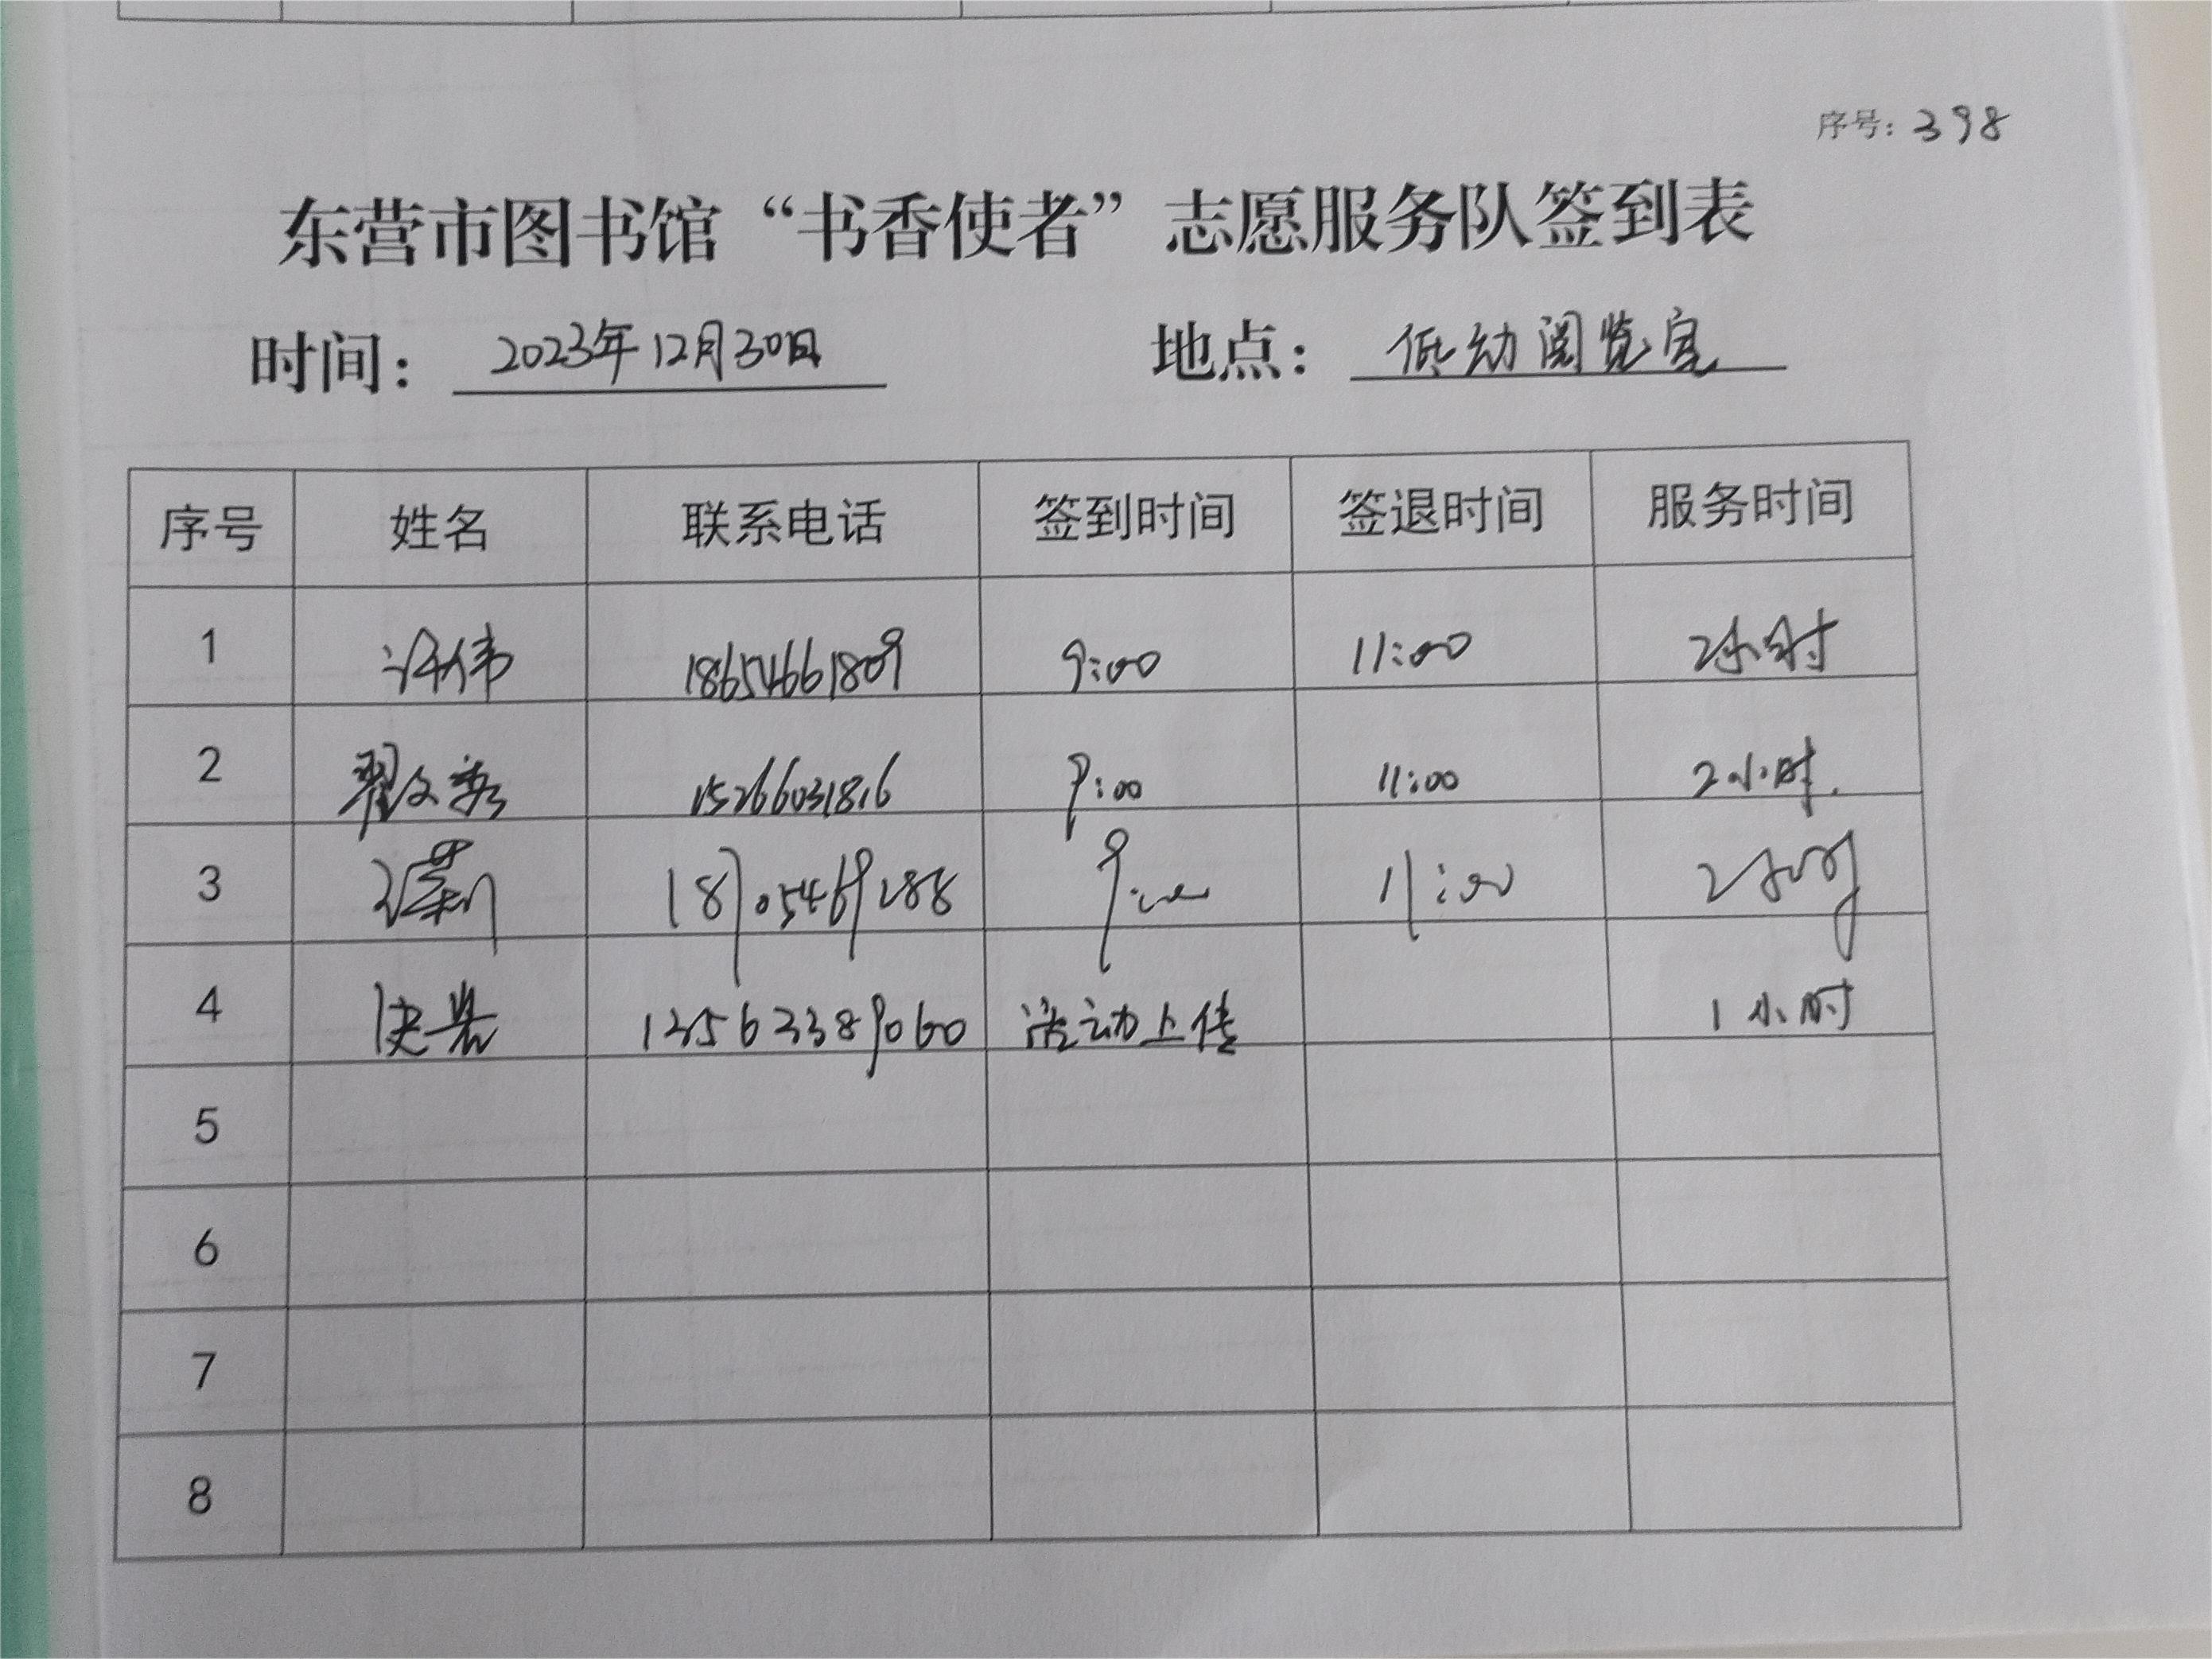 序号：398
东营市图书馆“书香使者”志愿服务队签到表
时间：2023年12月30日 地点：低幼阅览室
序号 姓名 联系电话 签到时间 签退时间 服务时间
1 许伟 18654661809 9:00 11:00 2小时
2 翟文 15266031816 9:00 11:00 2小时.
3 18705469288 9:00 11:00 2小时
4 13562389060 活动上传 1小时
5
6
7
8